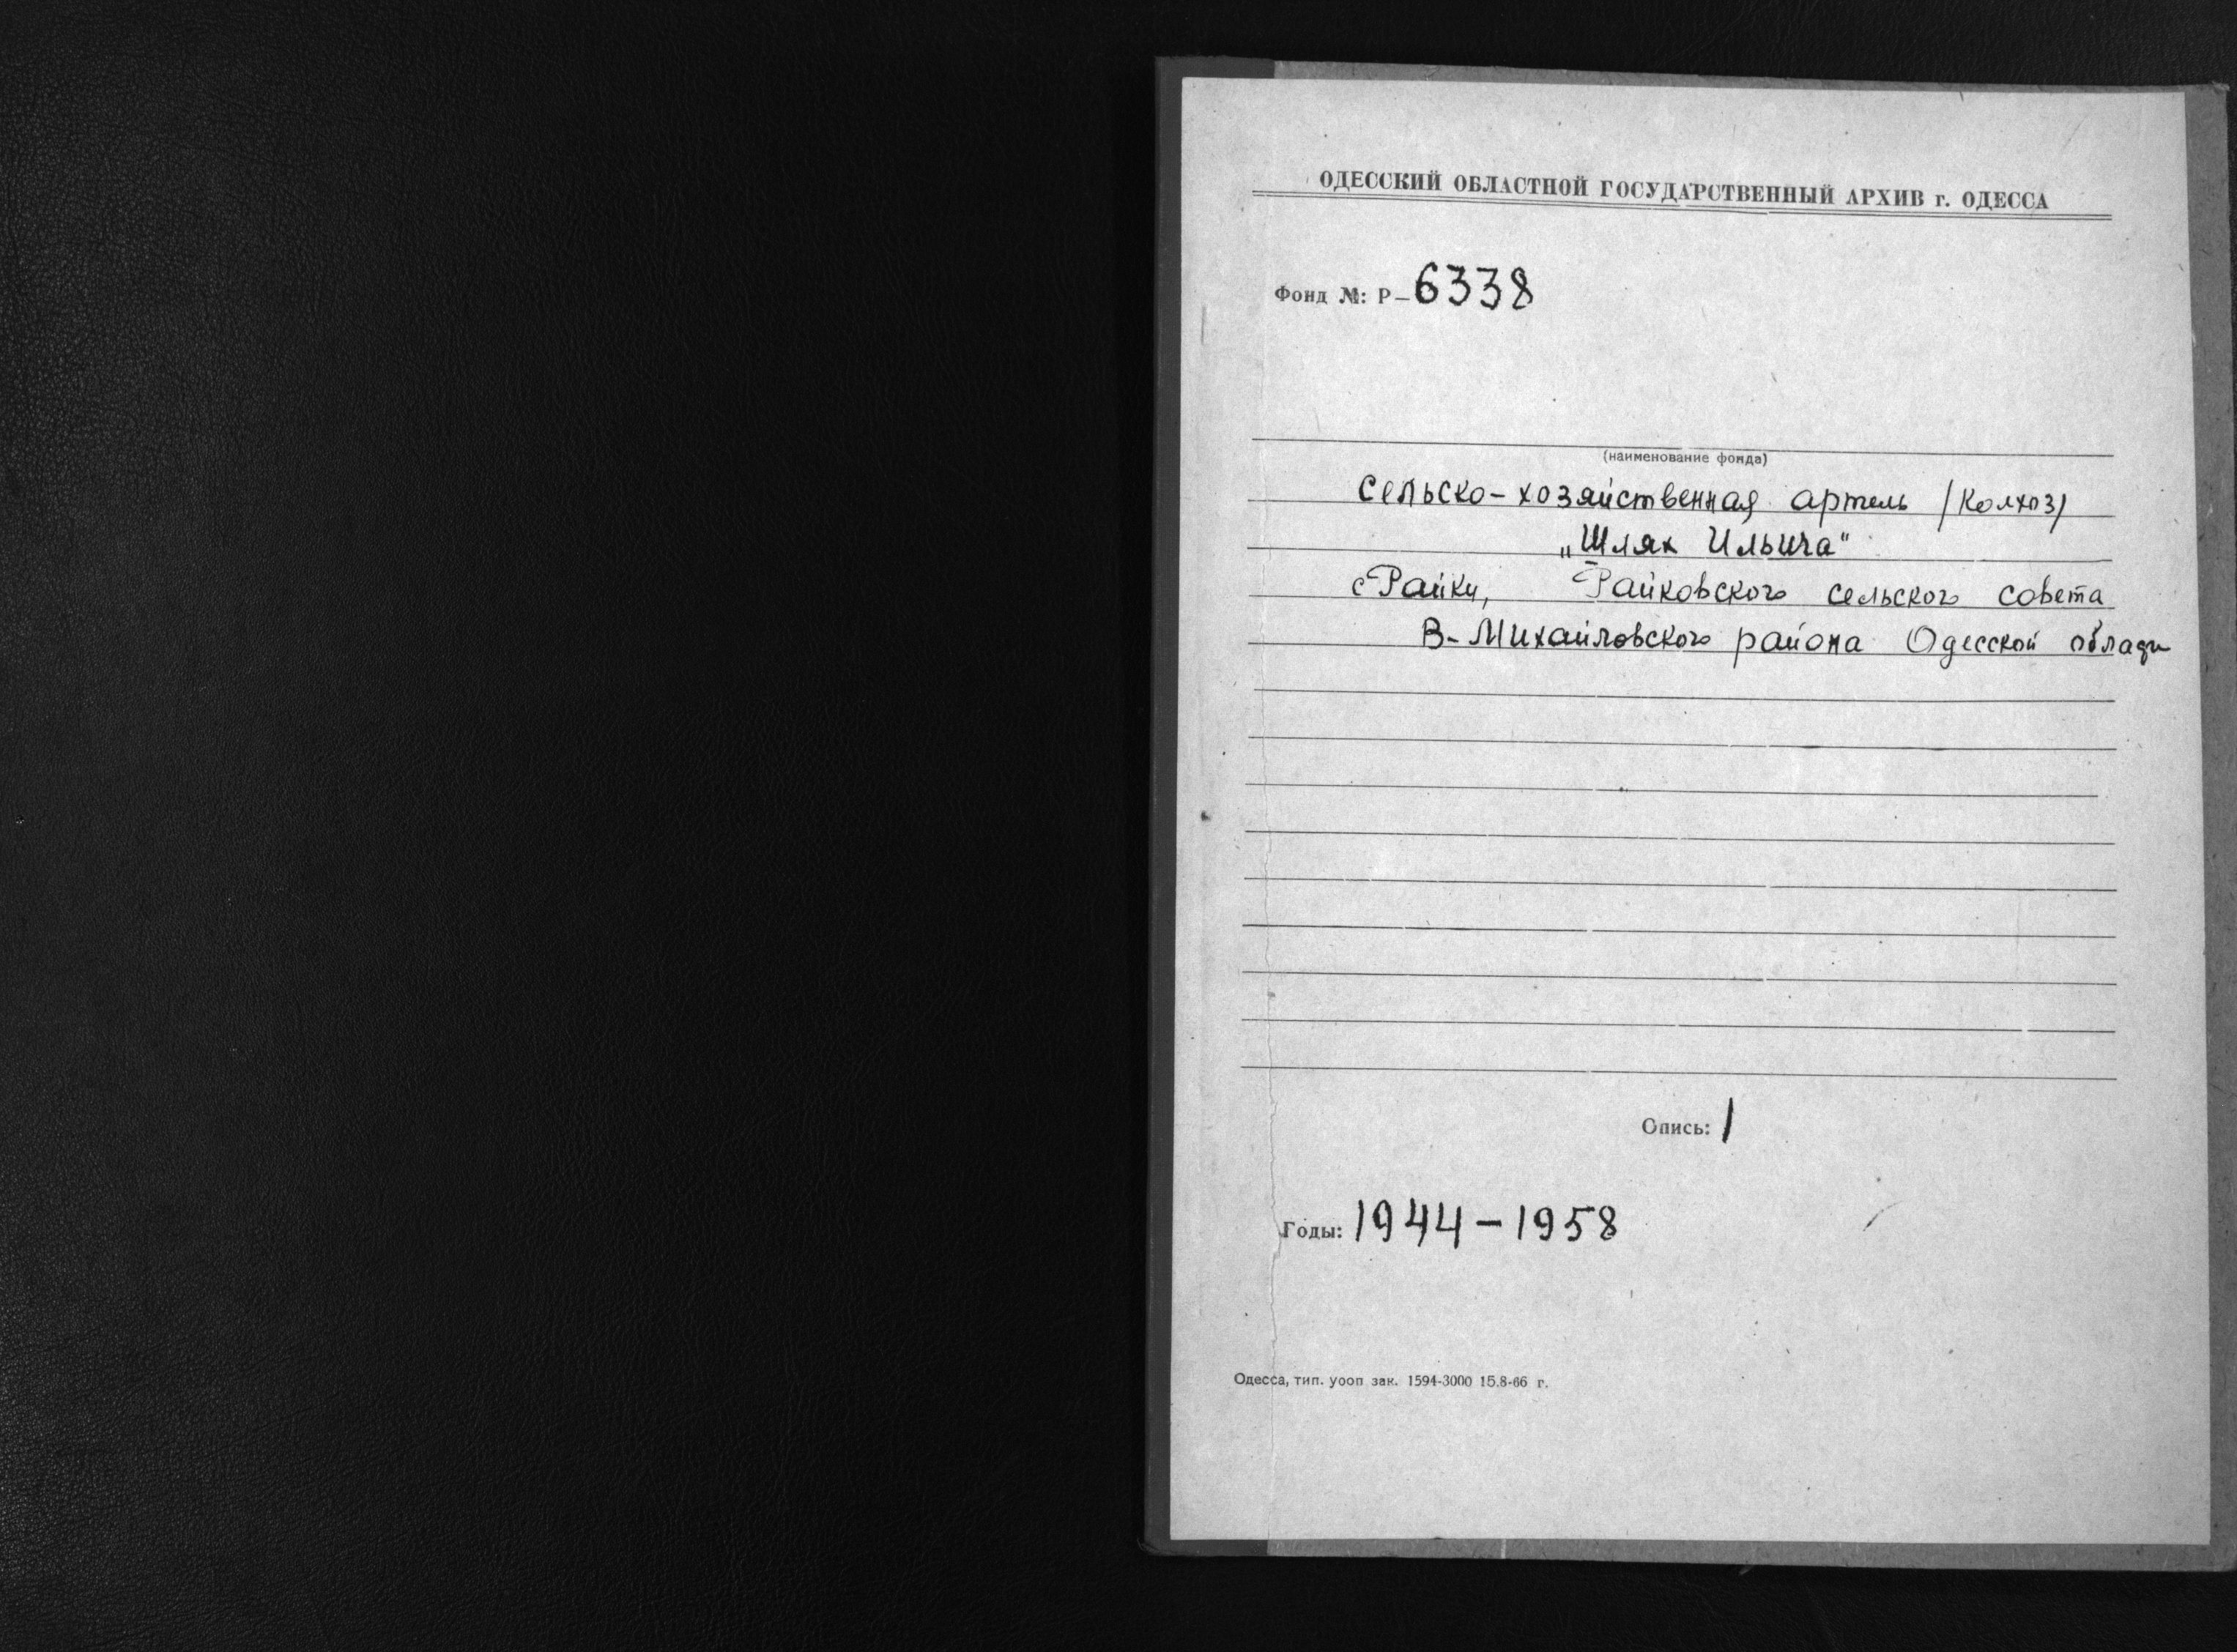 ОДЕССКИЙ ОБЛАСТНОЙ ГОСУДАРСТВЕННЫЙ АРХИВ г. ОДЕССА
Фонд №: Р-6338
(наименование фонда)
Сельско-хозяйственная артель /колхоз/
„Шлях Ильича"
с Райки, Райковского сельского совета
В-Михайловского района Одесской
Опись: 1
Годы: 1944-1958
Одесса, тип. уооп зак. 1594-3000 15.8-66 г.